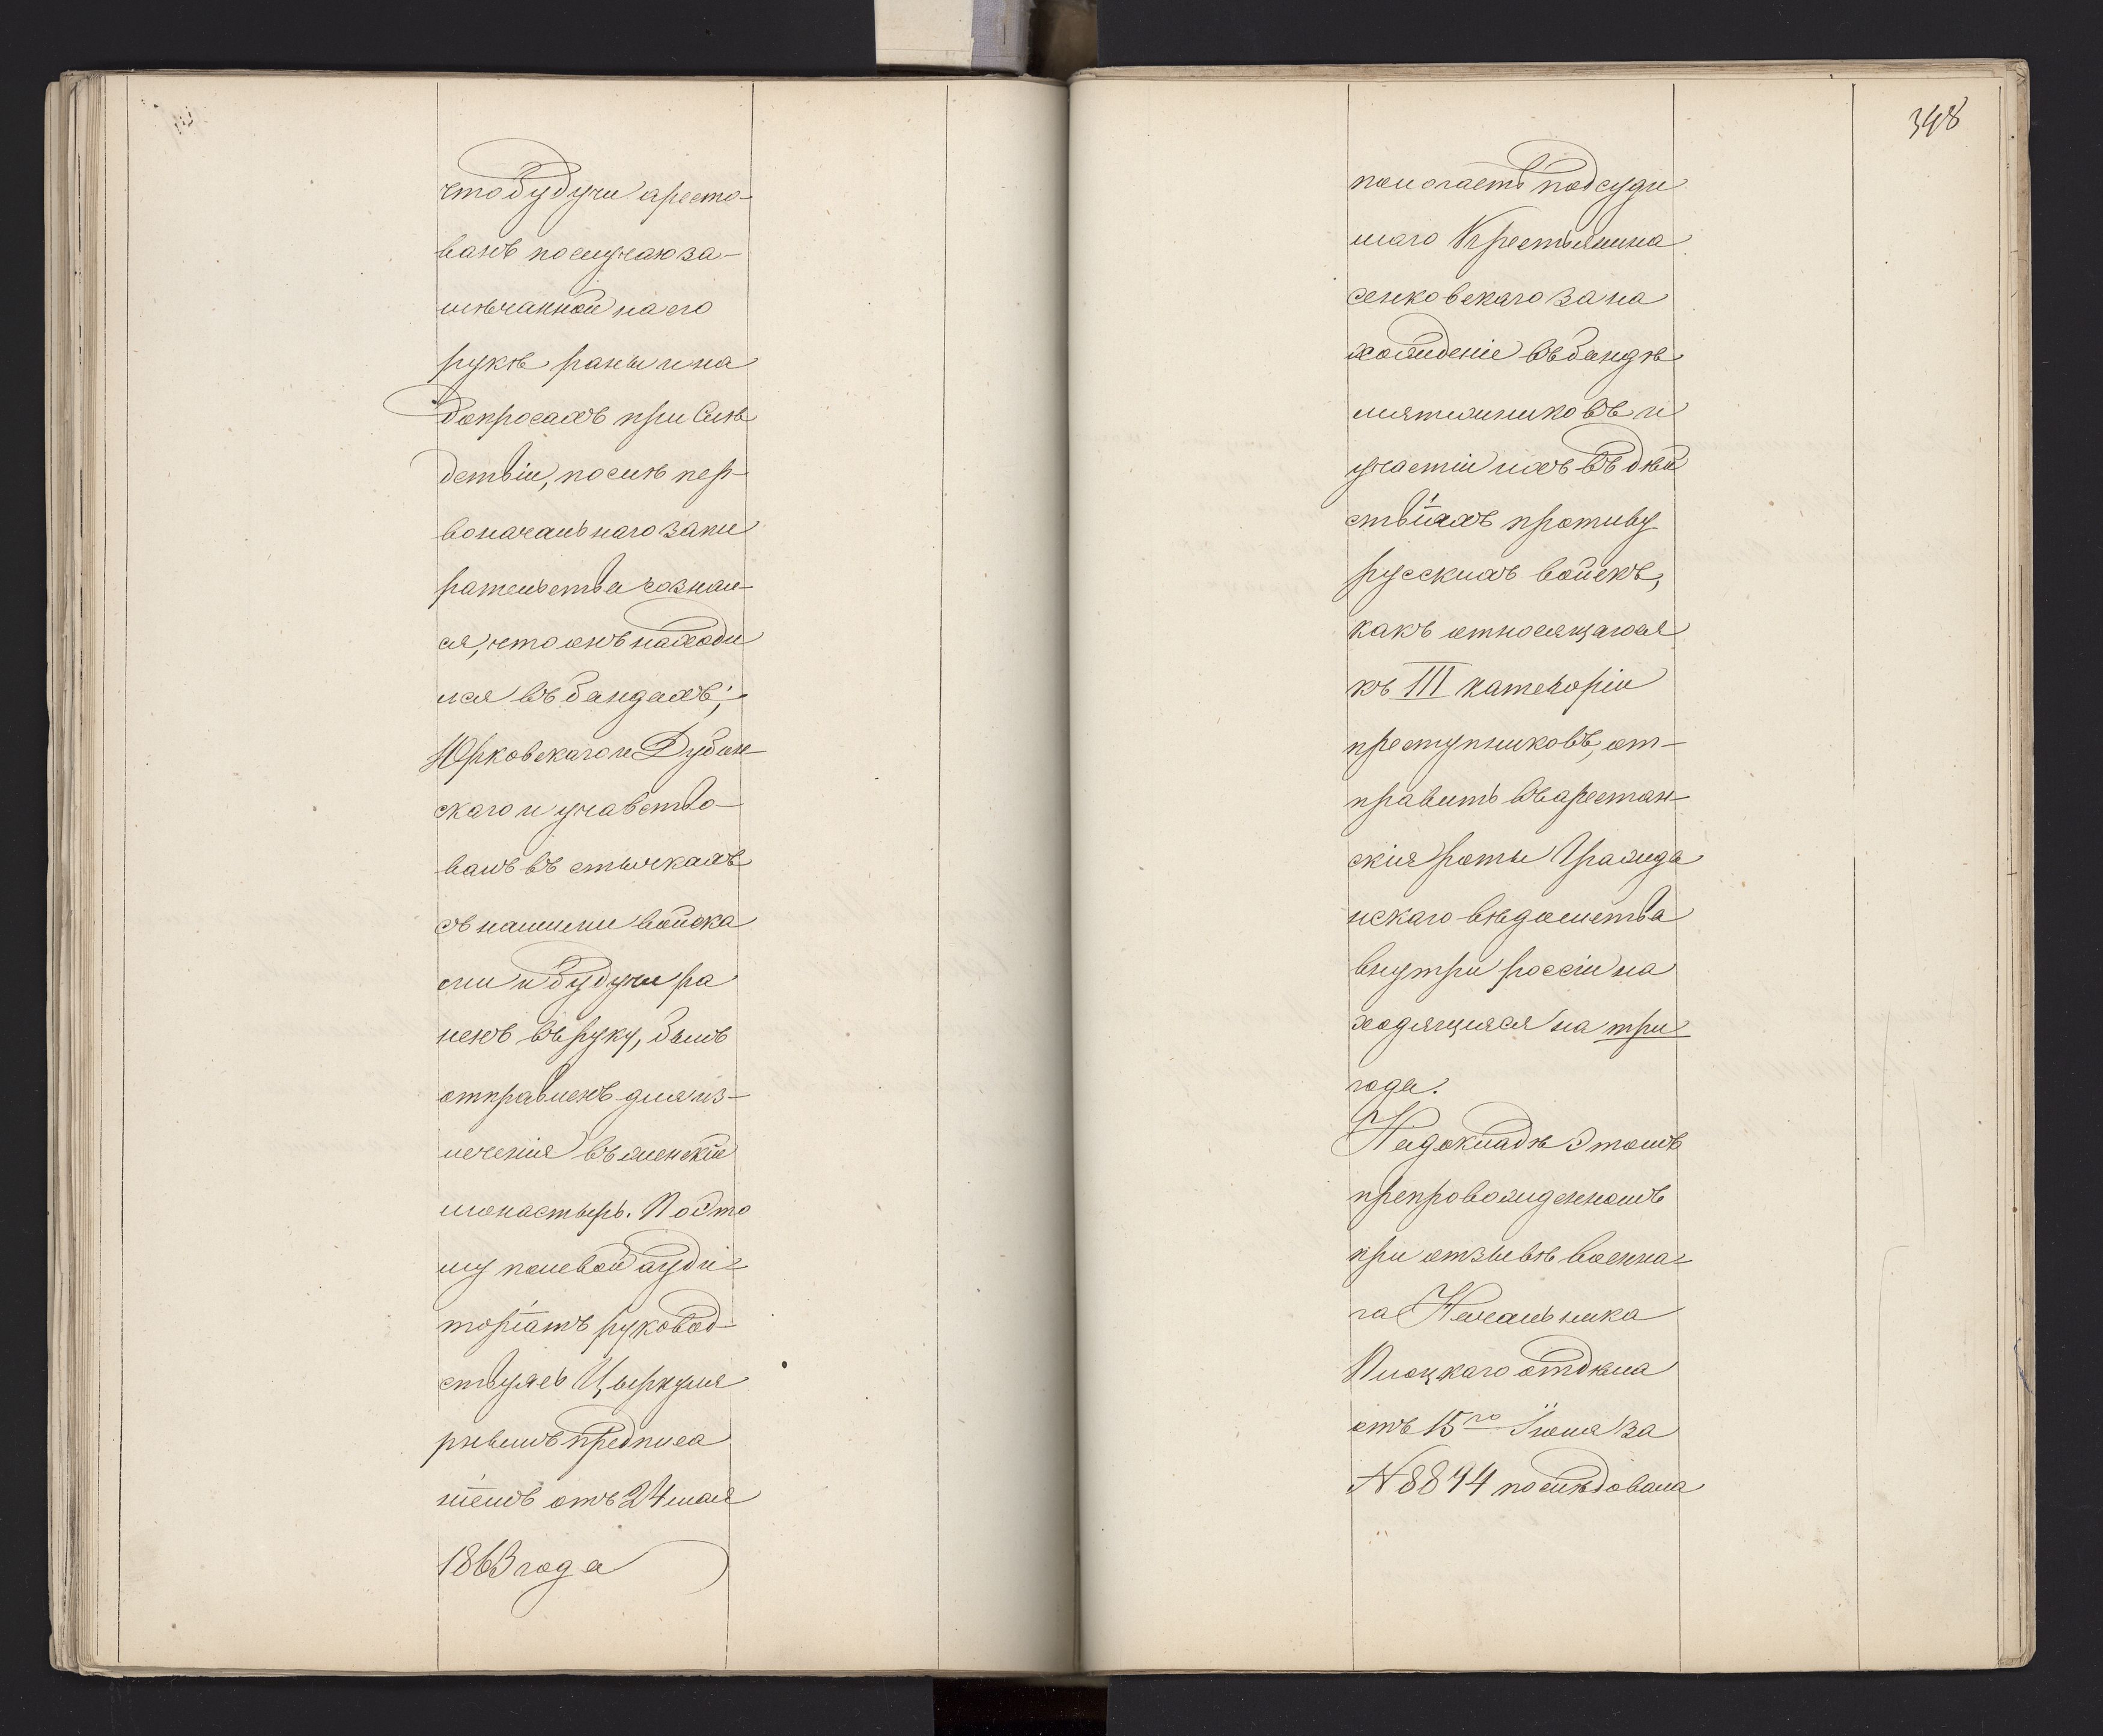 что будучи аресто-
ванъ по случаю за-
мѣчанной на его
рукѣ раны и на
допросахъ при Слѣ
детвіи, послѣ пер-
воначальнаго запи
рательства сознал-
ся, что онъ находи
лся въ бандахъ;
Юрковскаго и Дубин
скаго и учавство-
валъ въ стычкахъ
съ нашими войска
ми и будучи ра
ненъ въ руку, былъ
отправленъ для из-
леченія въ женскій
монастырь. Поэто
му полевой ауди-
торіатъ руковод-
ствуясь Цыркуля
рнымъ предписа
ніемъ отъ 24 мая
1863 года
348
полагаетъ подсуди
маго Крестьянина
сенковскаго за на
хожденіе въ бандѣ
мятежниковъ и
участіи ихъ въ дѣй
ствіяхъ противу
русскихъ войскъ,
какъ относящагося
къ III категоріи
преступниковъ, от-
править въ арестан-
скія роты Гражда
нскаго вѣдомства
внутри россіи на
ходящіяся на три
года.
На докладѣ Этомъ
препровожденномъ
при отзывѣ военна-
га Начальника
Плоцкаго отдѣла
отъ 15го Іюля за
N 8894 послѣдовала